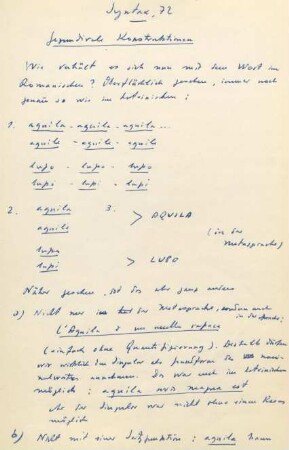 Syntax, 72
Konstruktionen
Wie verhält es sich nun mit dem Wort im
Romanischen? Oberflächlich gesehen, immer noch
genau so wie im Lateinischen:
1. aquila - aquila - aquila ...
aquile - aquile - aquile
lupo - lupo - lupo
lupi - lupi - lupi
2. aquila 3. > AQUILA
aquile (in der
Metasprache)
lupo
lupi > LUPO
Näher gesehen, ist das aber ganz anders
a) Nicht nur in der Metasprache, sondern auch
in der
L'Aquila è un uccello rapace
(einfach ohne Quantifizierung). Deshalb
wir wirklich den Singular als
annehmen. Das war auch im Lateinischen
möglich: aquila avis magna est
der Singular war nicht ohne einen
möglich
b) Nicht mit einer Satzfunktion: aquila kann